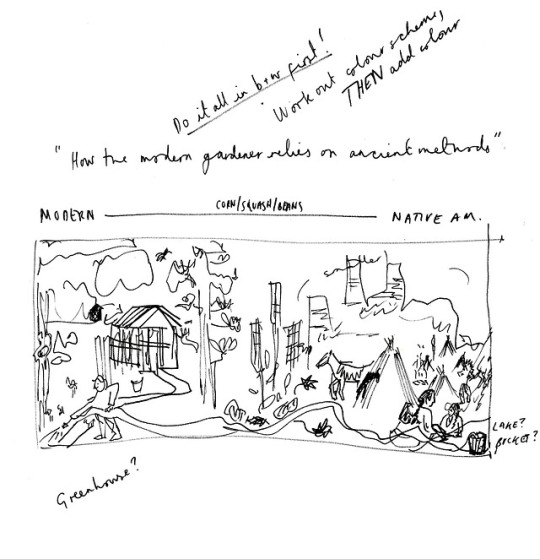 Do it all in b+w first!
Work out colour scheme,
THEN add colour
"How the modern gardener relies on ancient methods"
CORN/SQUASH/BEANS
MODERN NATIVE AM.
smaller
LAKE?
BUCKET?
Greenhouse?